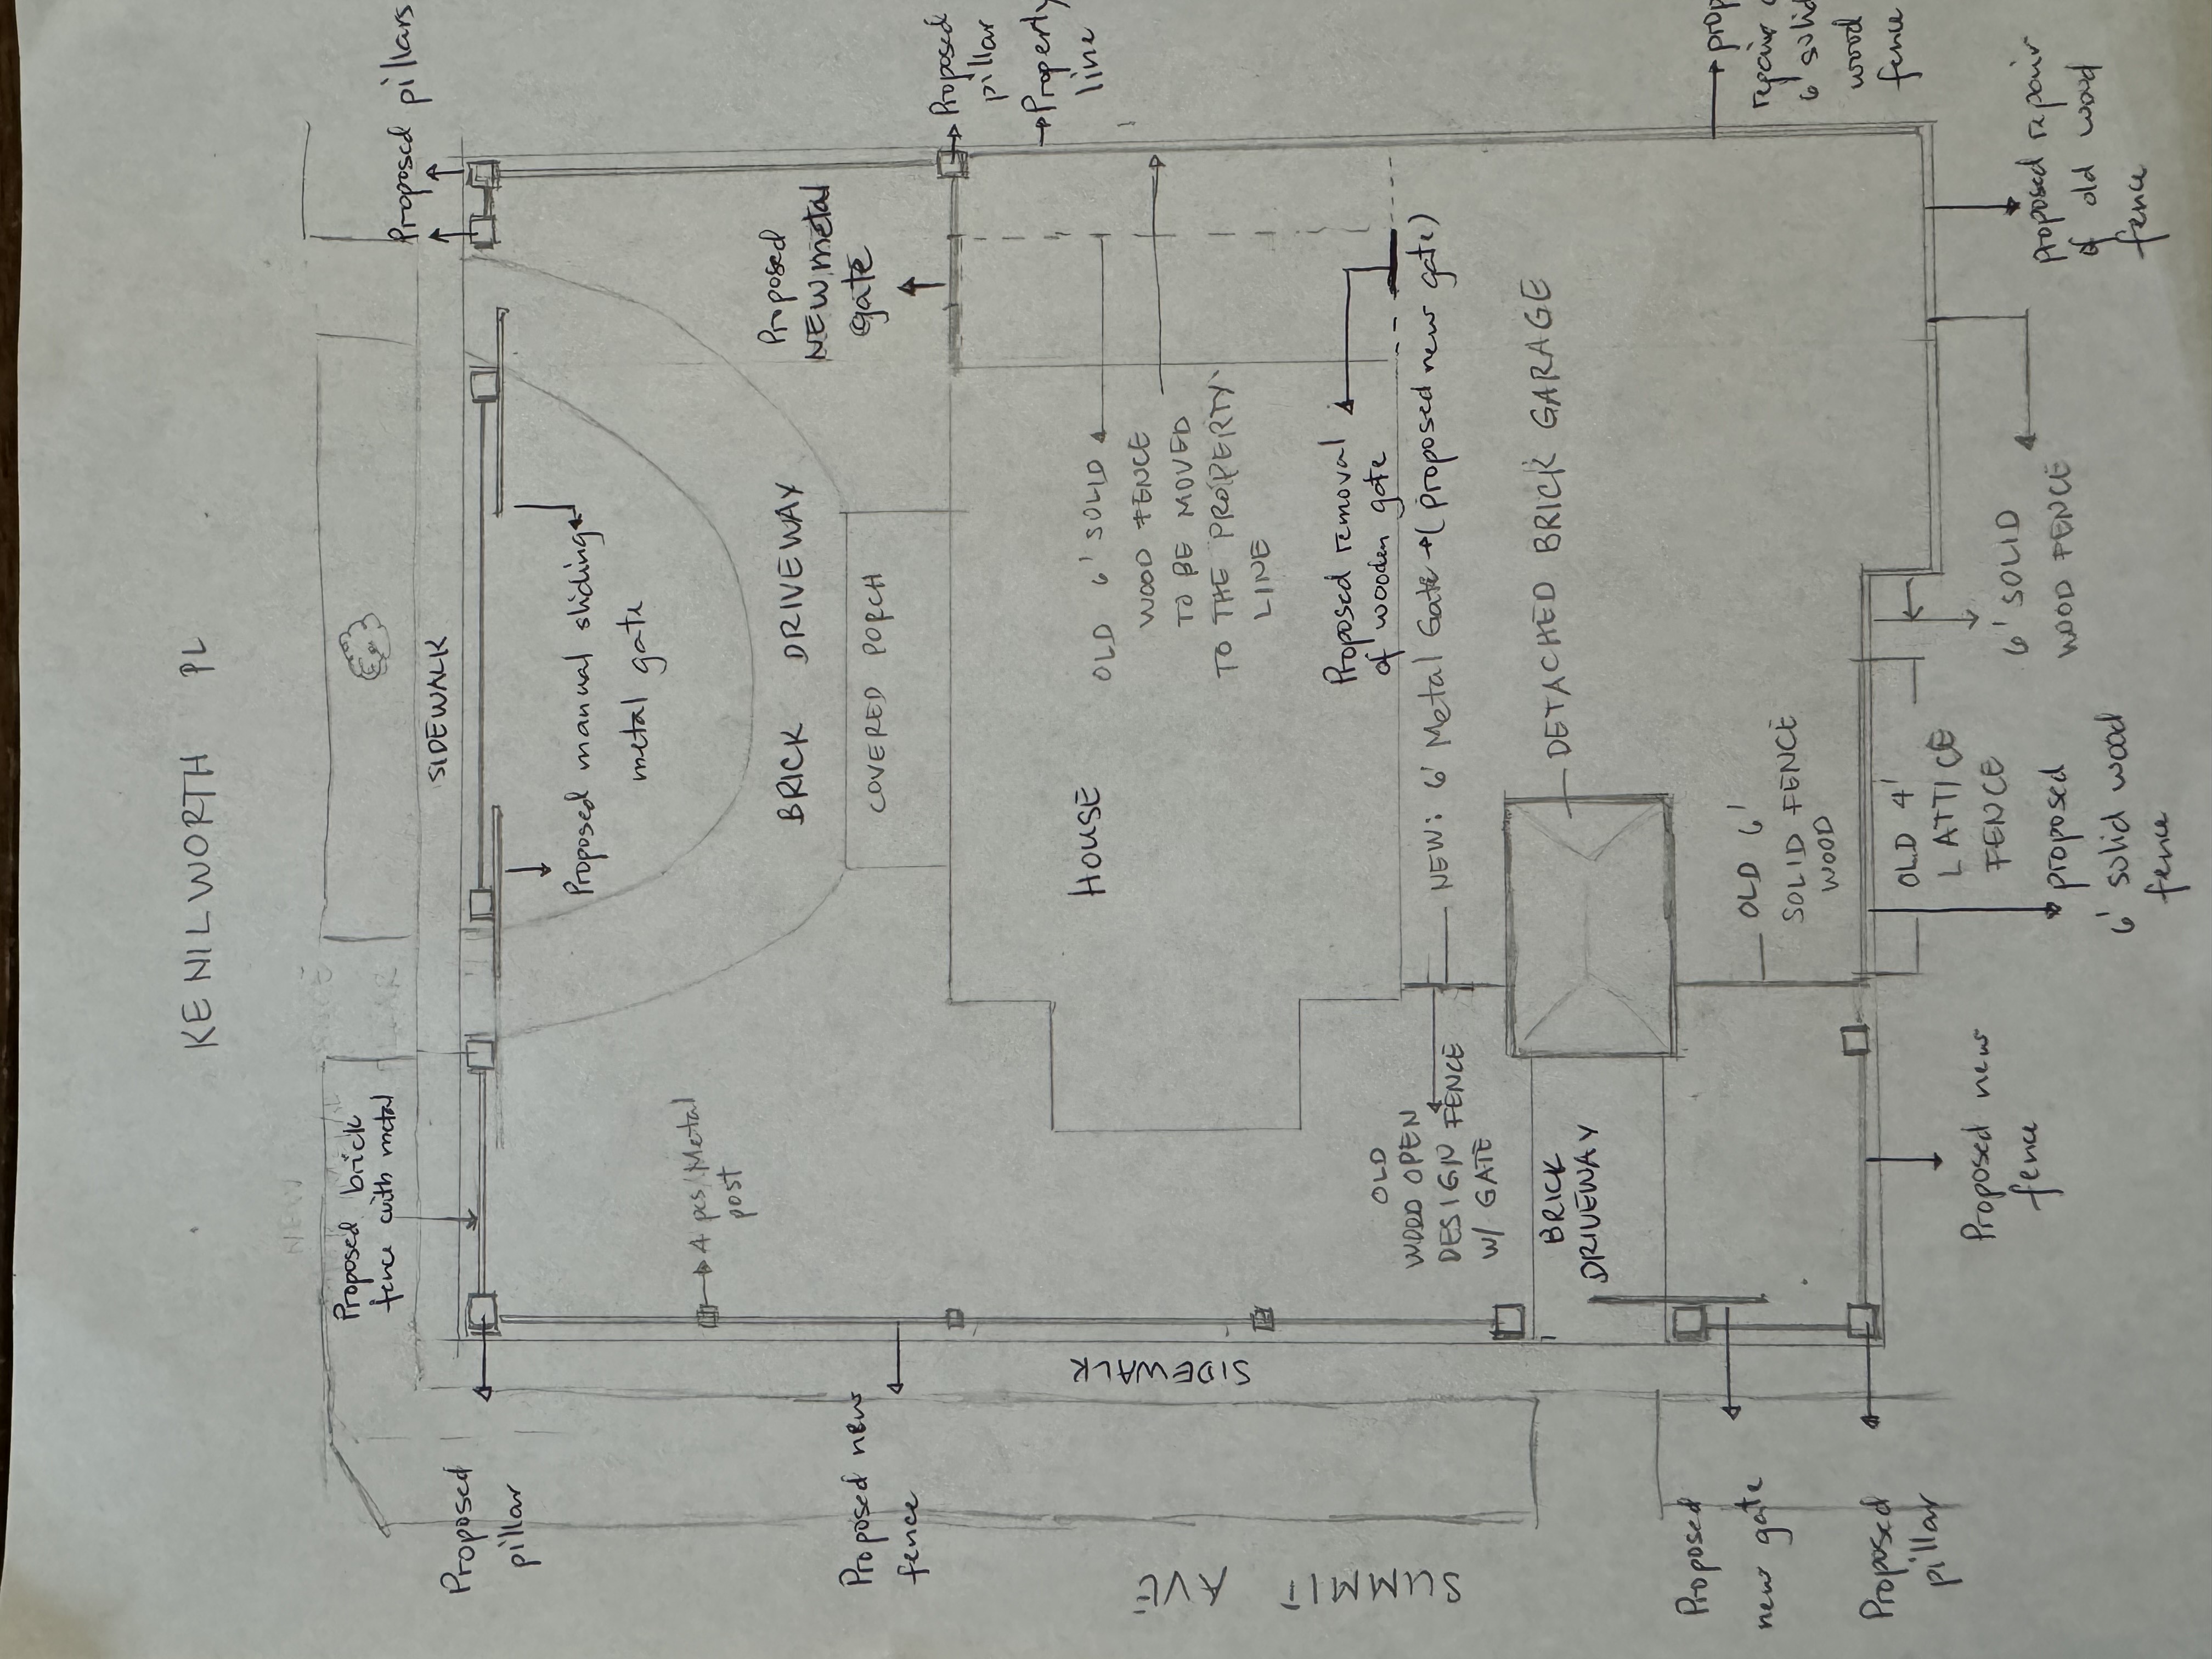 KENILWORTH PL
SIDEWALK
Proposed pillars
Proposed brick
fence with metal
NEW
Proposed manual sliding
metal gate
BRICK DRIVEWAY
COVERED PORCH
Proposed
NEW metal
gate
Proposed
pillar
Property
line
4 pcs/Metal
post
HOUSE
OLD 6' SOLID
WOOD FENCE
TO BE MOVED
TO THE PROPERTY
LINE
Proposed removal
of wooden gate
NEW: 6' Metal Gate (Proposed new gate)
OLD
WOOD OPEN
DESIGN FENCE
W/ GATE
DETACHED BRICK GARAGE
BRICK
DRIVEWAY
OLD 6'
SOLID FENCE
WOOD
OLD 4'
LATTICE
FENCE
proposed
6' solid wood
fence
6' SOLID
WOOD FENCE
proposed repair
of old wood
fence
prop
repair
6' solid
wood
fence
Proposed new
fence
SIDEWALK
Proposed
pillar
Proposed new
fence
Proposed
new gate
Proposed
pillar